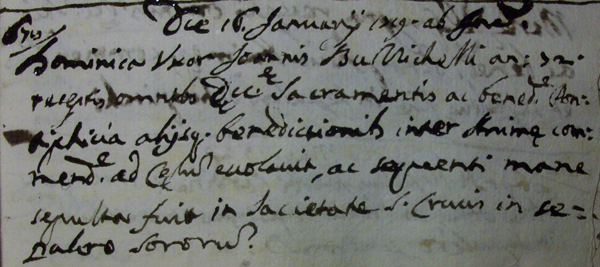 Die 16 Januarij 1719 ab Inc.e
Dominica Uxor Joannis Bu Michelli an: 72.
receptis omnibs Ecc.e Sacramentis ac bened.e Pon-
tificia alijsq. benedictionib inter Animę com-
mend.e ad Cęlū evolavit, ac sequenti mane
sepulta fuit in Societate S. Crucis in se=
pulcro sororū.